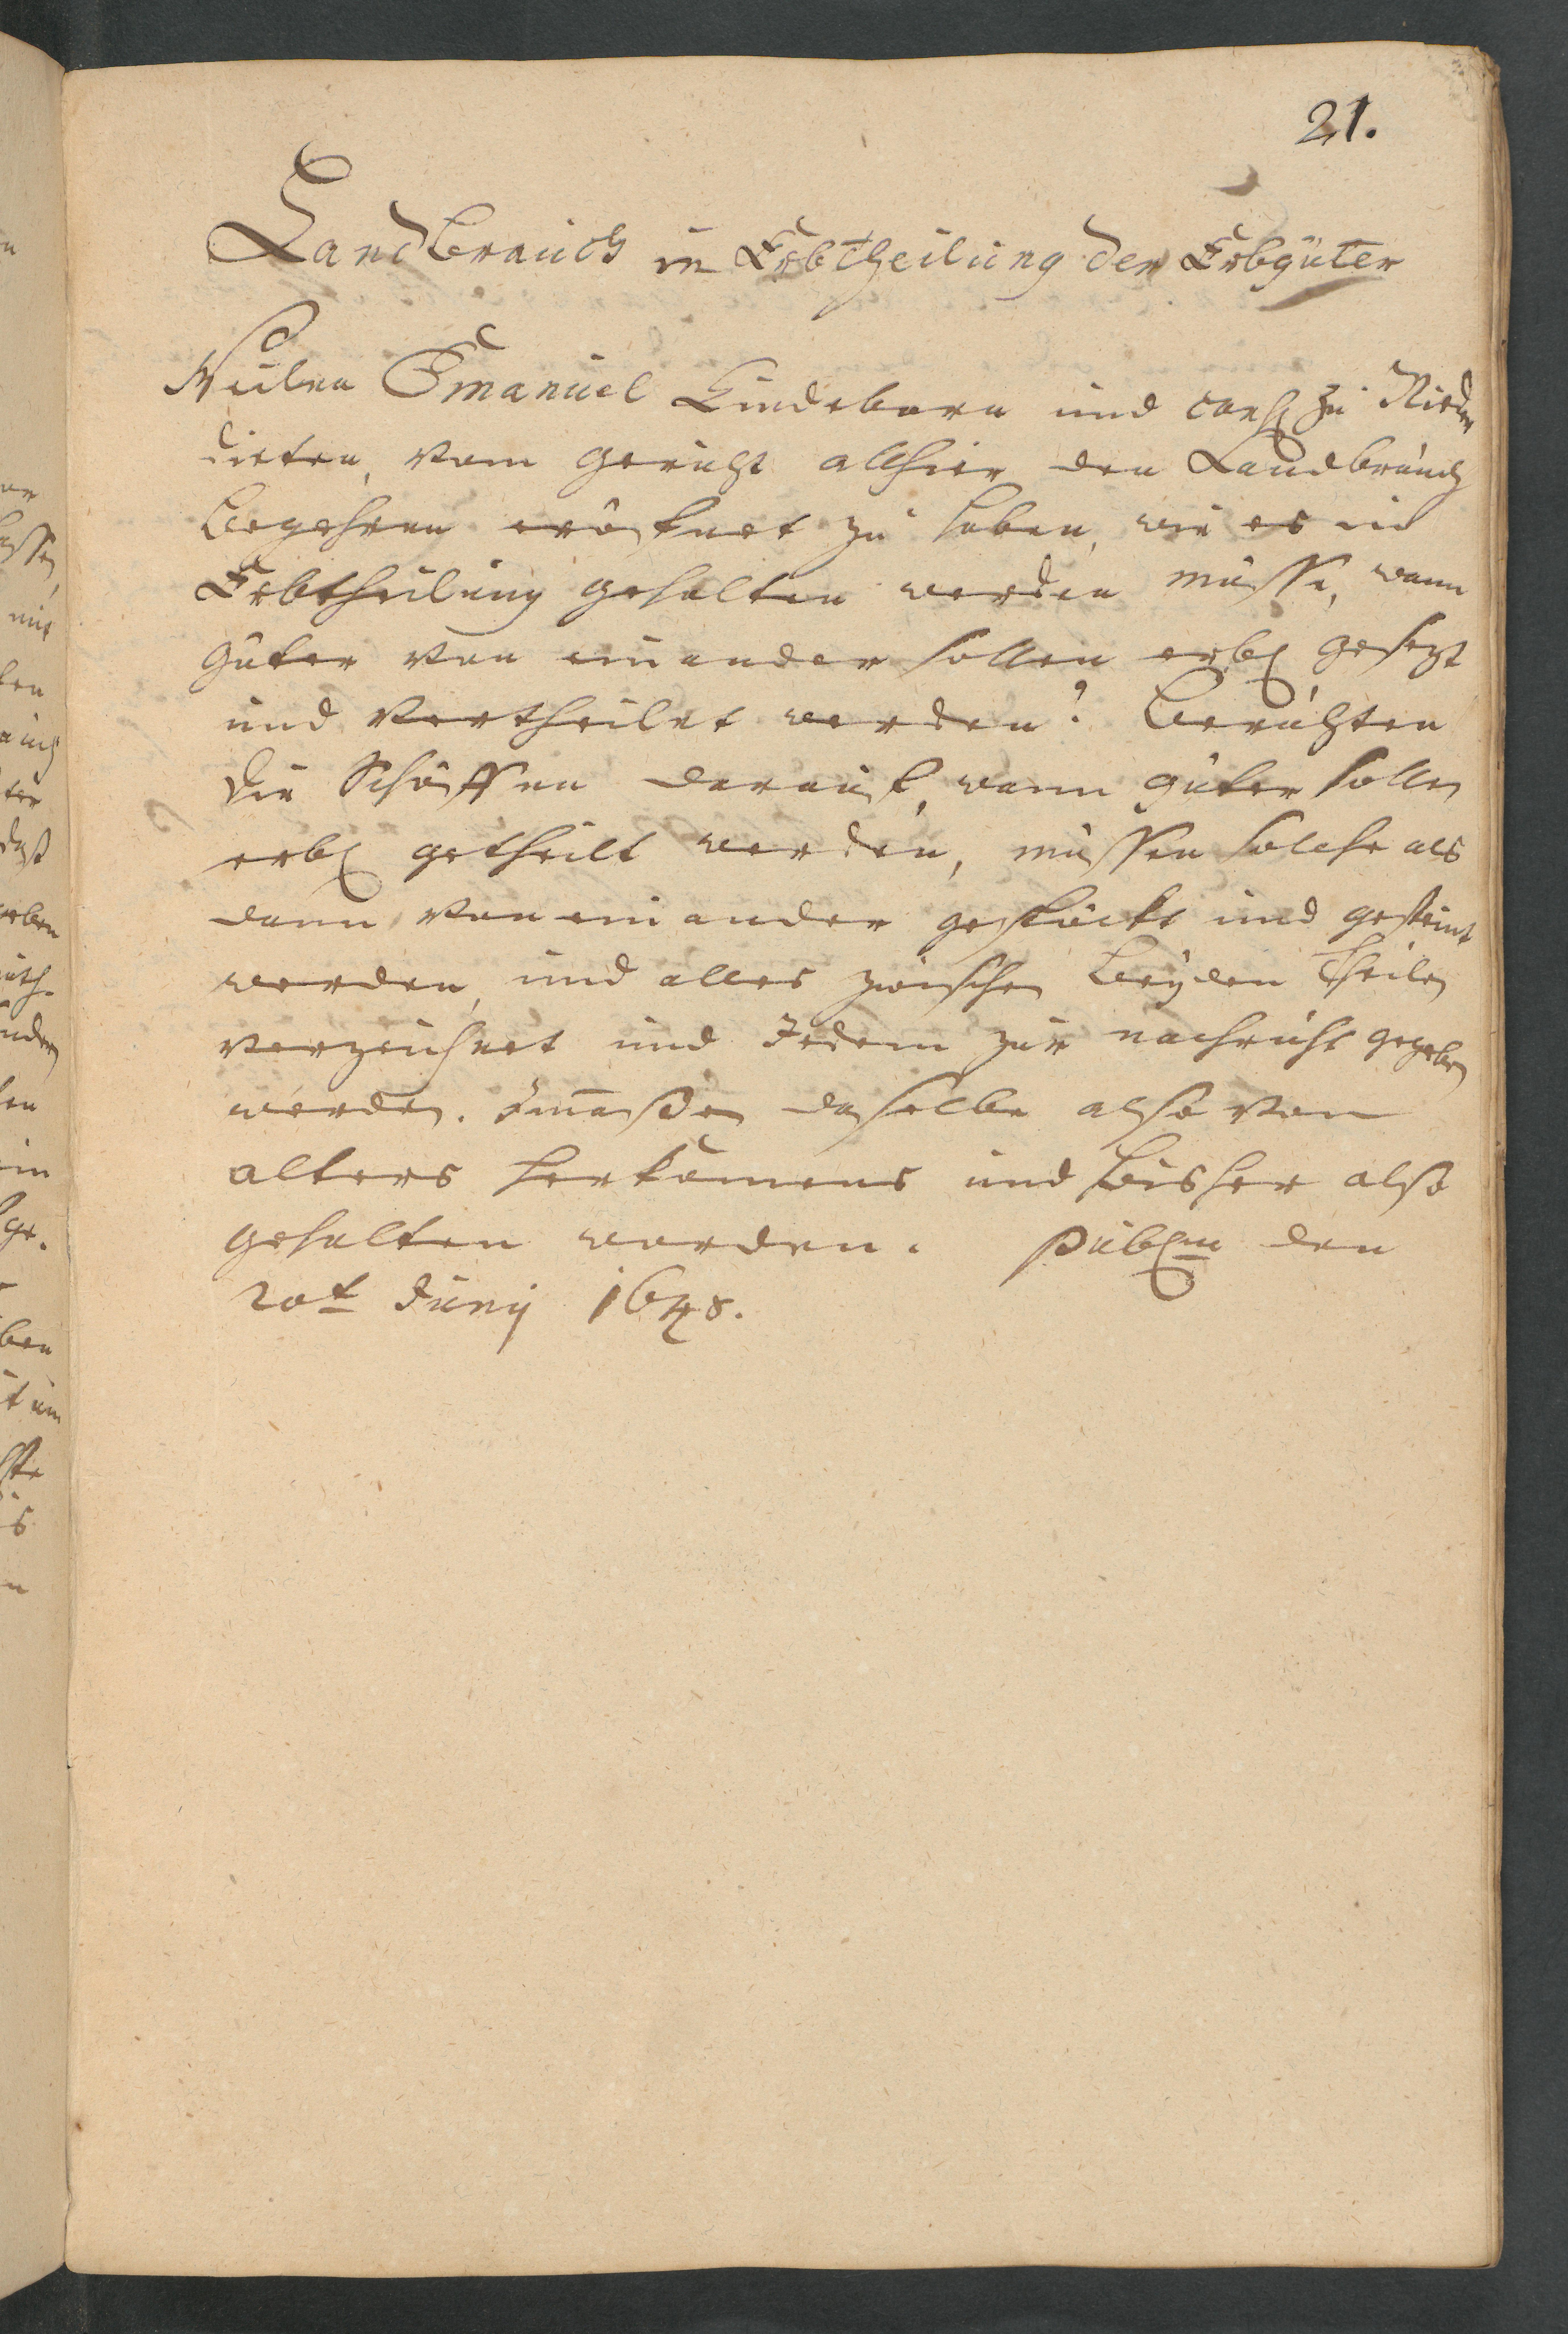 21.
Landbrauch in Erbtheilung der Erbgüter
Weilen Emanuel Lindeborn und cons. zu Nieder
dieten, vom gericht allhier den Landbrauch
Begehren eröfnet zu haben, wie es in
Erbtheilung gehalten werden müsse, wann
güter von einander sollen erbl. gesezt
und vertheilet werden? Berichten
die Schöffen darauf, wann güter sollen
erbl. getheilt werden, müssen solche als
dann von einander gestückt und gesteint
werden, und alles zwischen beyden Theilen
verzeichnet und Jedem zur nachricht gegeben
werden. Immaßen dasselbe also von
alters herkomens und bisher also
gehalten worden. Publ.m den
20t Junij 1648.